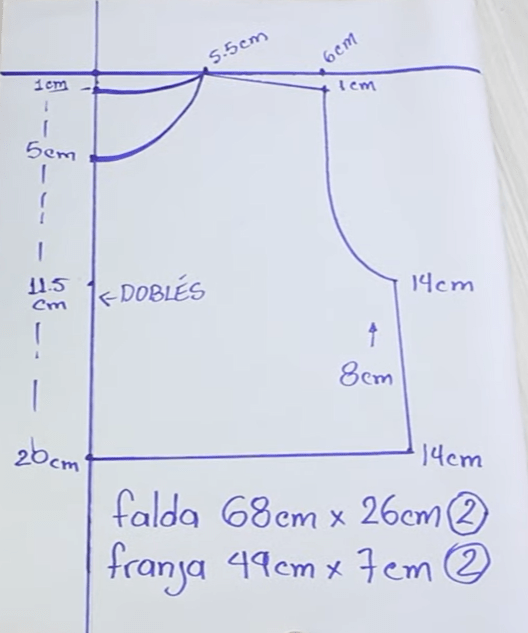 5.5cm
6cm
1cm
1cm
5cm
11.5
cm
←DOBLÉS
14cm
↑
8cm
20cm
14cm
falda 68cm x 26cm ②
franja 49cm x 7cm ②